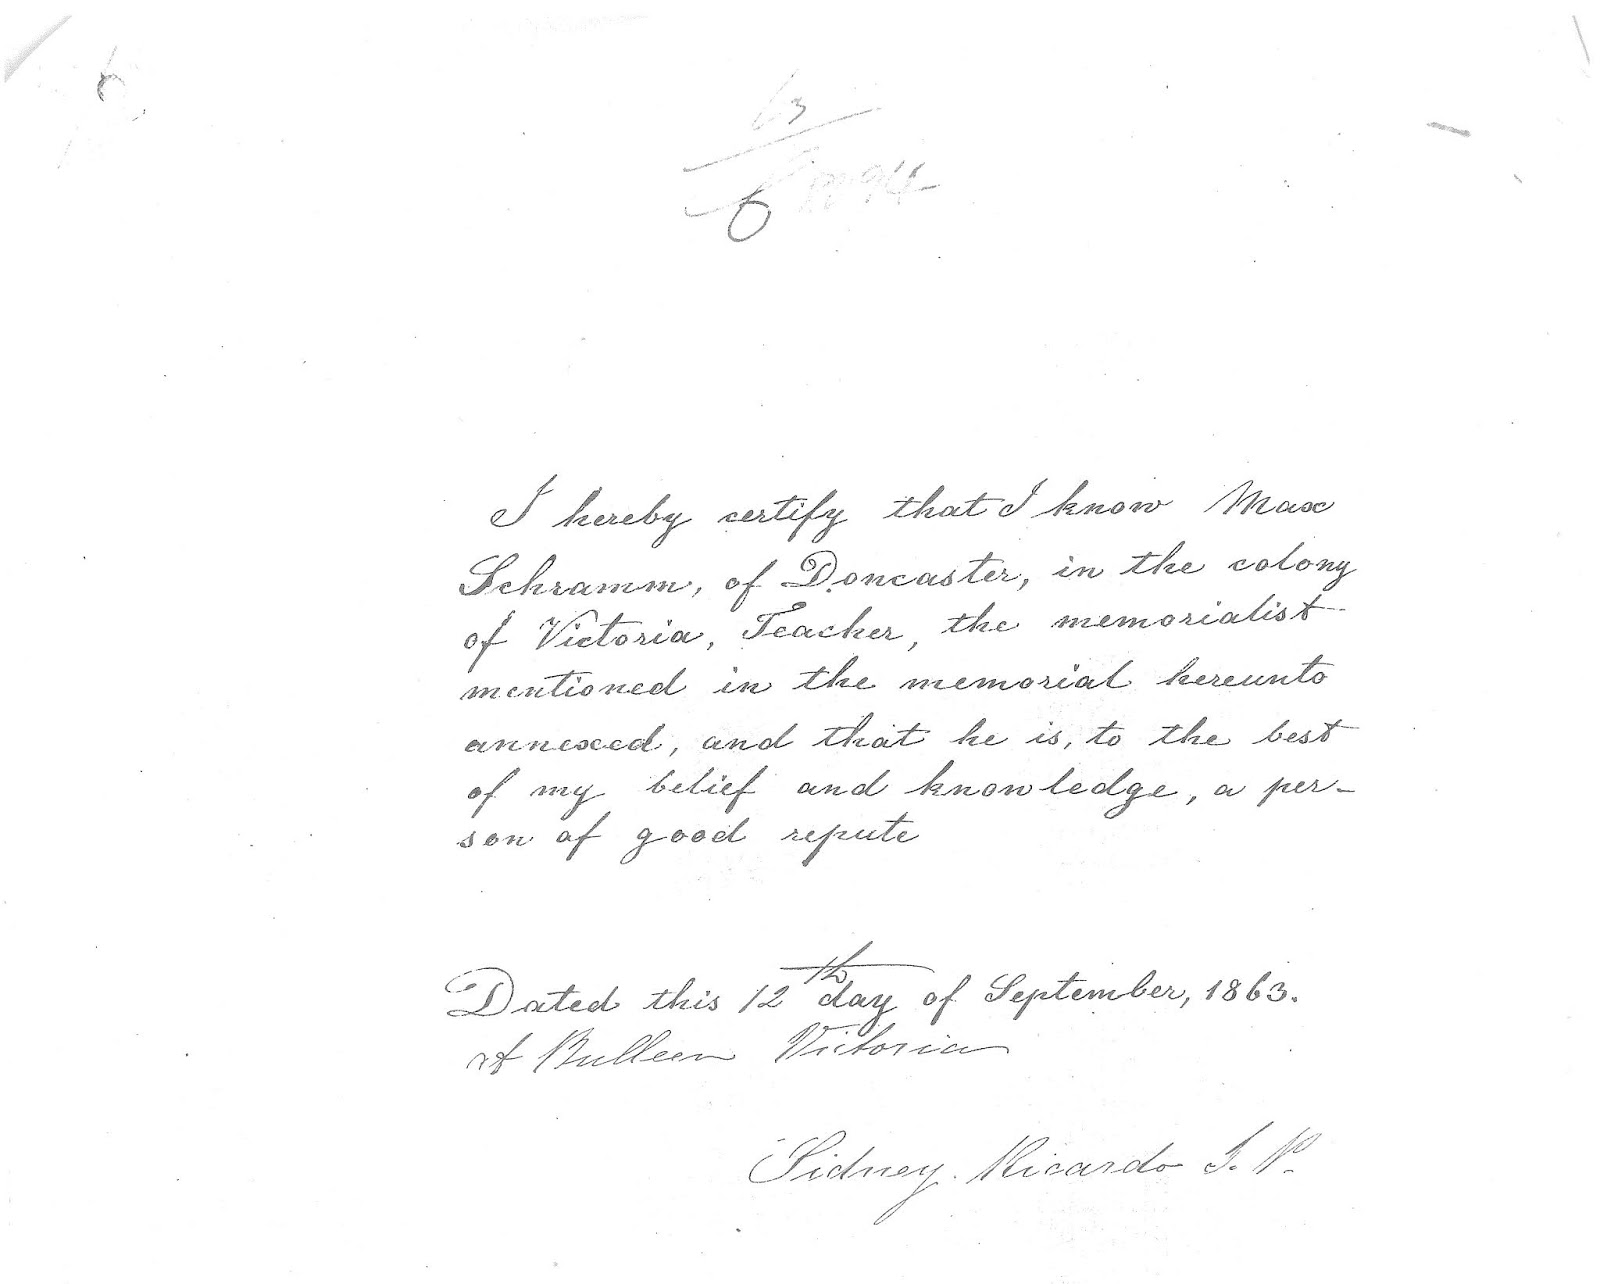 63
I hereby certify that I know Max
Schramm, of Doncaster, in the colony
of Victoria, Teacher, the memorialist
mentioned in the memorial hereunto
annexed, and that he is, to the best
of my belief and knowledge, a per-
son of good repute
Dated this 12th day of September, 1863.
At Bulleen Victoria
Sidney. Ricardo J. P.